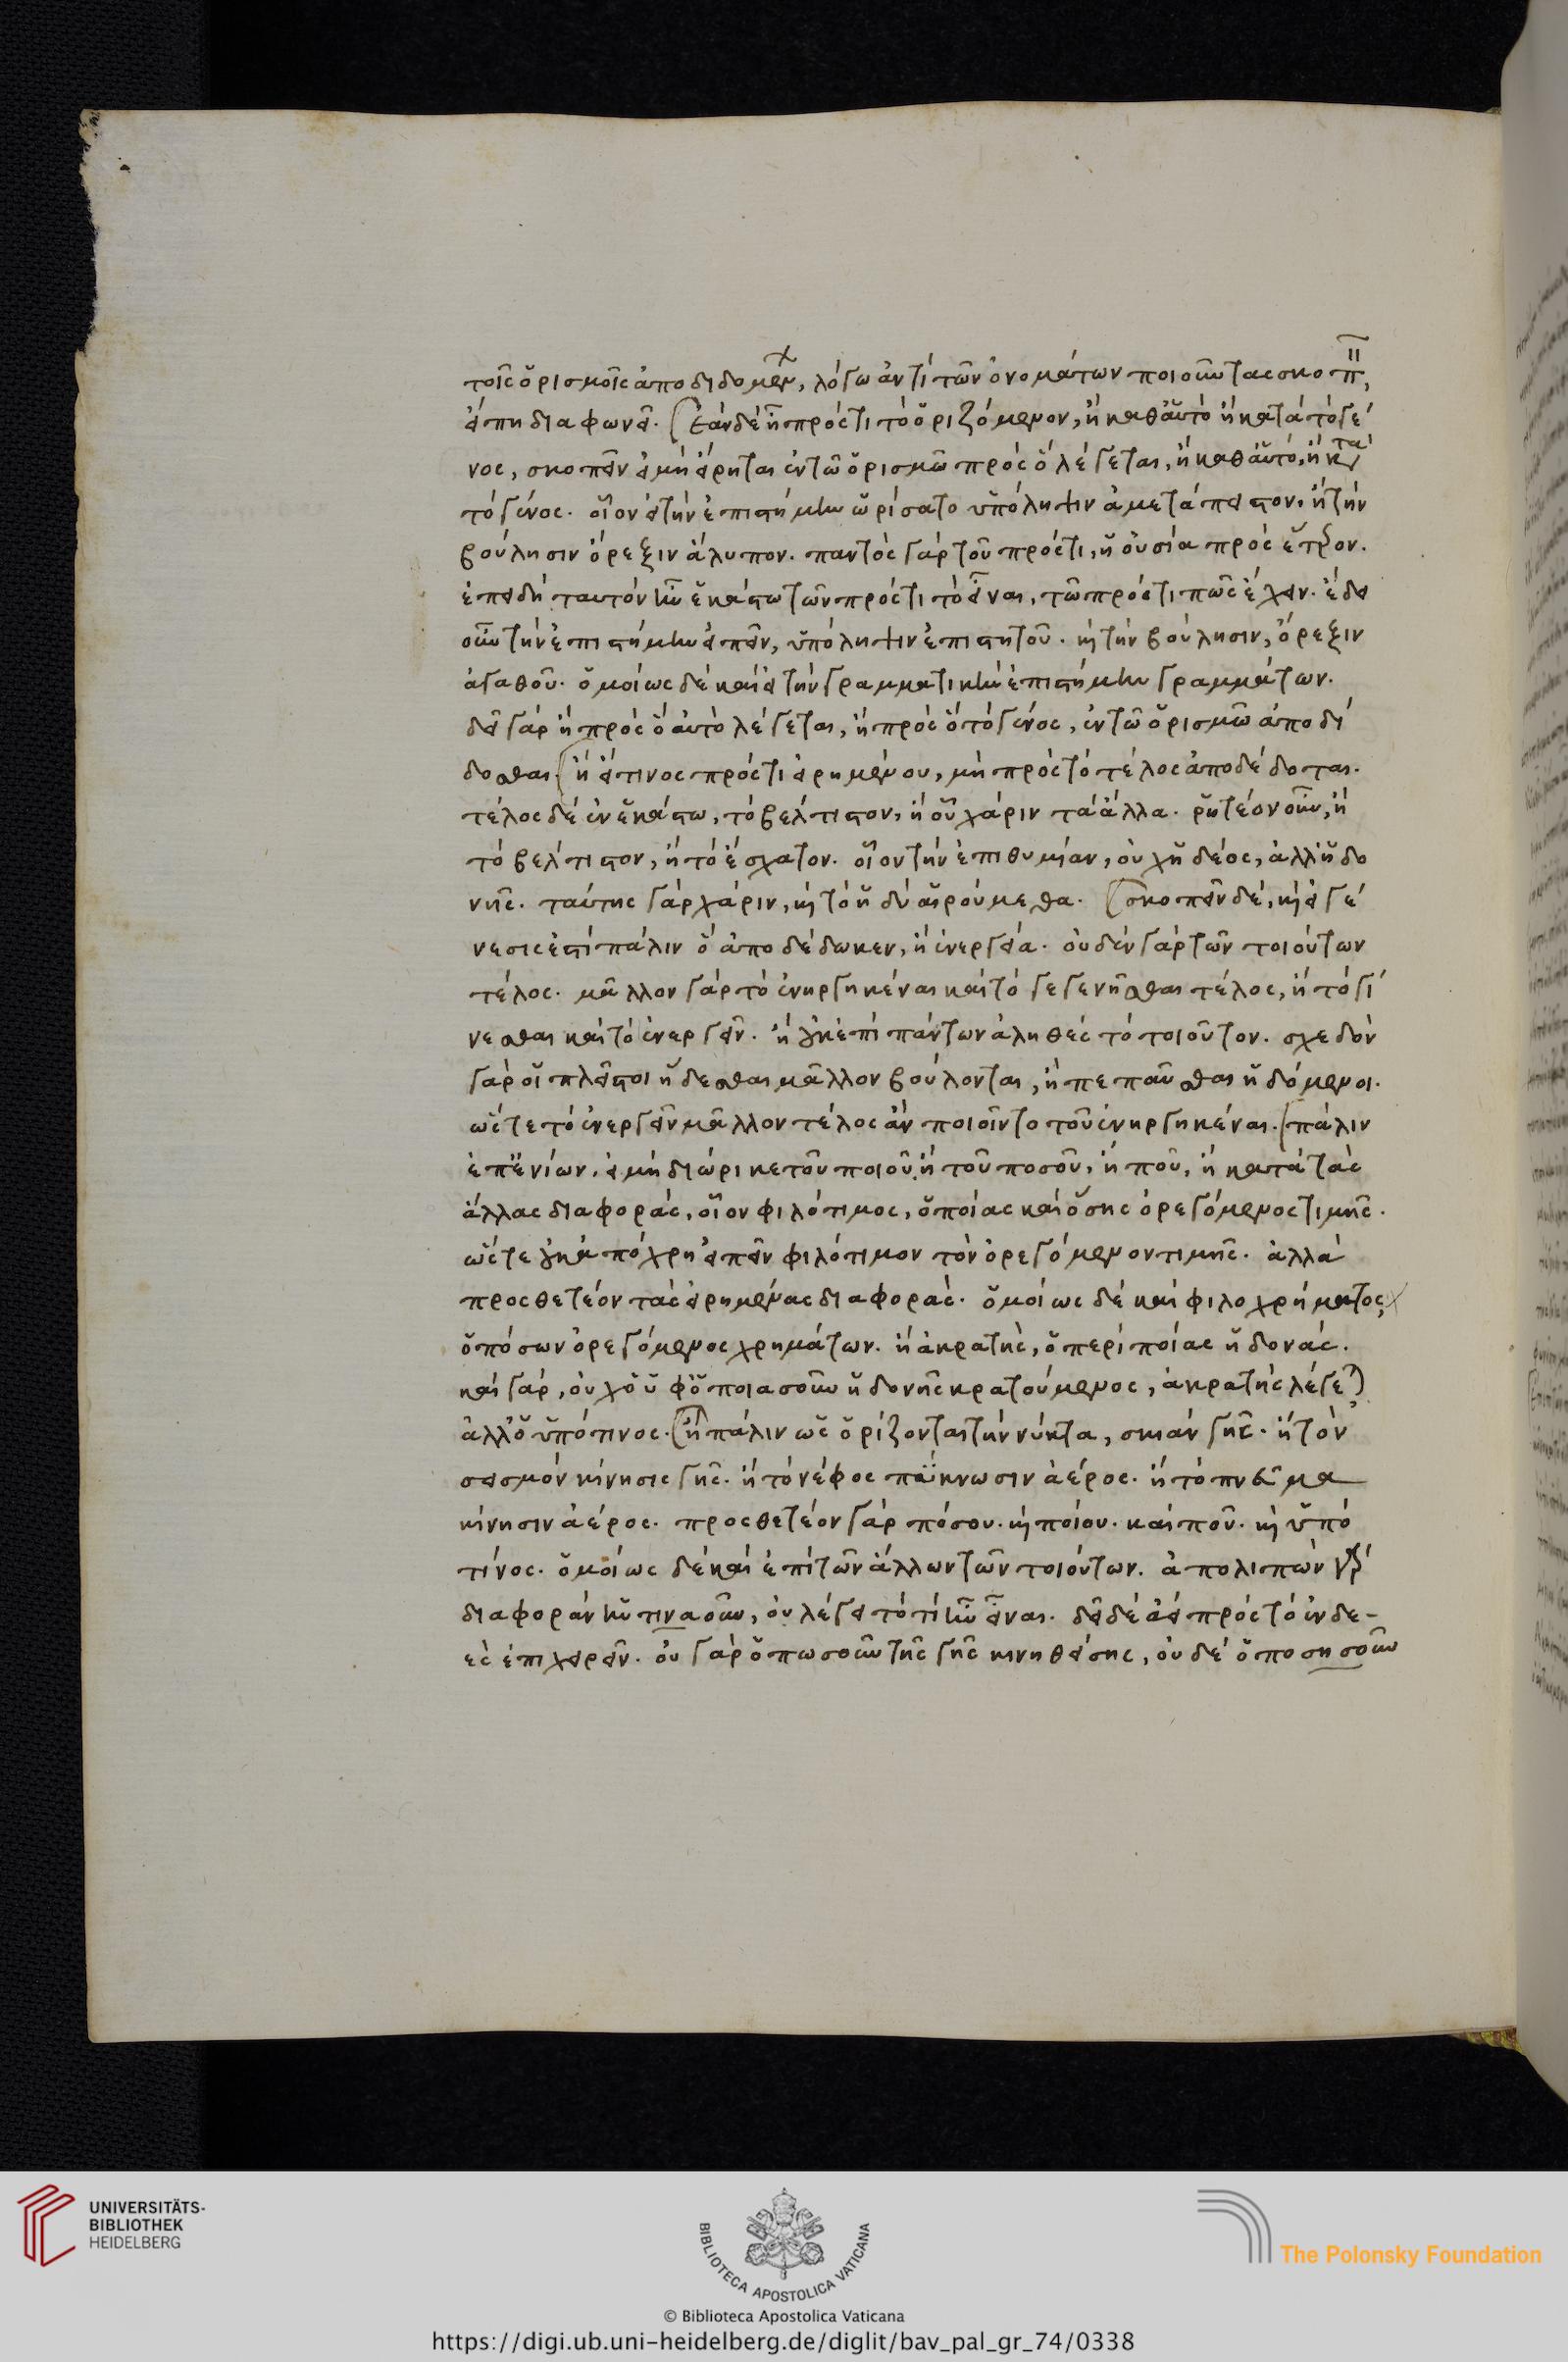 τοῖς ὁρισμοῖς ἀποδιδομένων, λόγω ἀντὶ τῶν ὀνομάτων ποιοῦντας σκοπ
εἴ πη διαφωνεῖ. Ἐὰν δὲ ἦ πρός τι τὸ ὁριζόμενον, ἢ καθ' αὑτὸ ἢ κατὰ τὸ γέ
νος, σκοπεῖν εἰ μὴ εἴρηται ἐν τῶ ὁρισμῶ πρὸς ὃ λέγεται, ἢ καθ' αὑτό, ἢ κατὰ
τὸ γένος. οἷον εἰ τὴν ἐπιστήμην ὡρίσατο ὑπόληψιν ἀμετάπειστον, ἢ τὴν
βούλησιν ὄρεξιν ἄλυπον. παντὸς γὰρ τοῦ πρός τι, ἡ οὐσία πρὸς ἕτερον.
ἐπειδὴ ταυτὸν ἦν ἑκάστω τῶν πρός τι τὸ εἶναι, τῶ πρός τι πῶς ἔχειν. ἔδει
οὖν τὴν ἐπιστήμην εἰπεῖν, ὑπόληψιν ἐπιστητοῦ. καὶ τὴν βούλησιν, ὄρεξιν
ἀγαθοῦ. ὁμοίως δὲ καὶ εἰ τὴν γραμματικὴν ἐπιστήμην γραμμάτων.
δεῖ γὰρ ἢ πρὸς ὃ αὐτὸ λέγεται, ἢ πρὸς ὃ τὸ γένος, ἐν τῶ ὁρισμῶ ἀποδί
δοσθαι. ἢ εἴ τινος πρός τι εἰρημένου, μὴ πρὸς τὸ τέλος ἀποδέδοται.
τέλος δὲ ἐν ἑκάστω, τὸ βέλτιστον, ἢ οὗ χάριν τὰ ἄλλα. ῥητέον οὖν, ἢ
τὸ βέλτιστον, ἢ τὸ ἔσχατον. οἷον τὴν ἐπιθυμίαν, οὐχ ἡδέος, ἀλλ' ἡδο
νῆς. ταύτης γὰρ χάριν, καὶ τὸ ἡδὺ αἱρούμεθα. σκοπεῖν δέ, καὶ εἰ γέ
νεσις ἐστὶ πάλιν ὃ ἀποδέδωκεν, ἢ ἐνεργεία. οὐδὲν γὰρ τῶν τοιούτων
τέλος. μᾶλλον γὰρ τὸ ἐνηργηκέναι καὶ τὸ γεγενῆσθαι τέλος, ἢ τὸ γί
νεσθαι καὶ τὸ ἐνεργεῖν. ἢ οὐκ ἐπὶ πάντων ἀληθὲς τὸ τοιοῦτον. σχεδὸν
γὰρ οἱ πλεῖστοι ἥδεσθαι μᾶλλον βούλονται, ἢ πεπαῦσθαι ἡδόμενοι.
ὥστε τὸ ἐνεργεῖν μᾶλλον τέλος ἂν ποιοῖντο τοῦ ἐνηργηκέναι. πάλιν
ἐπ' ἐνίων, εἰ μὴ διώρικε τοῦ ποιοῦ, ἢ τοῦ ποσοῦ, ἢ ποῦ, ἢ κατὰ τὰς
ἄλλας διαφοράς, οἷον φιλότιμος, ὁποίας καὶ ὅσης ὀρεγόμενος τιμῆς.
ὥστε οὐκ ἀπόχρη εἰπεῖν φιλότιμον τὸν ὀρεγόμενον τιμῆς. ἀλλὰ
προσθετέον τὰς εἰρημένας διαφοράς. ὁμοίως δὲ καὶ φιλοχρήματος,
ὁπόσων ὀρεγόμενος χρημάτων. ἢ ἀκρατής, ὁ περὶ ποίας ἡδονάς.
καὶ γάρ, οὐχ ὁ ὑφ' ὁποιασοῦν ἡδονῆς κρατούμενος, ἀκρατὴς λέγε
ἀλλ' ὁ ὑπό τινος. ἢ πάλιν ὡς ὁρίζονται τὴν νύκτα, σκιὰν γῆς. ἢ τὸν
σεισμὸν κίνησις γῆς. ἢ τὸ νέφος πύκνωσιν ἀέρος. ἢ τὸ πνεῦμα
κίνησιν ἀέρος. προσθετέον γὰρ πόσου. καὶ ποίου. καὶ ποῦ. καὶ ὑπὸ
τίνος. ὁμοίως δὲ καὶ ἐπὶ τῶν ἄλλων τῶν τοιούτων. ἀπολιπὼν γὰρ
διαφορὰν ἡντιναοῦν, οὐ λέγει τὸ τί ἦν εἶναι. δεῖ δὲ ἀεὶ πρὸς τὸ ἐνδε-
ὲς ἐπιχειρεῖν. οὐ γὰρ ὁπωσοῦν τῆς γῆς κινηθείσης, οὐδὲ ὁποσησοῦν
UNIVERSITÄTS-
BIBLIOTHEK
HEIDELBERG
BIBLIOTECA APOSTOLICA VATICANA
The Polonsky Foundation
© Biblioteca Apostolica Vaticana
https://digi.ub.uni-heidelberg.de/diglit/bav_pal_gr_74/0338